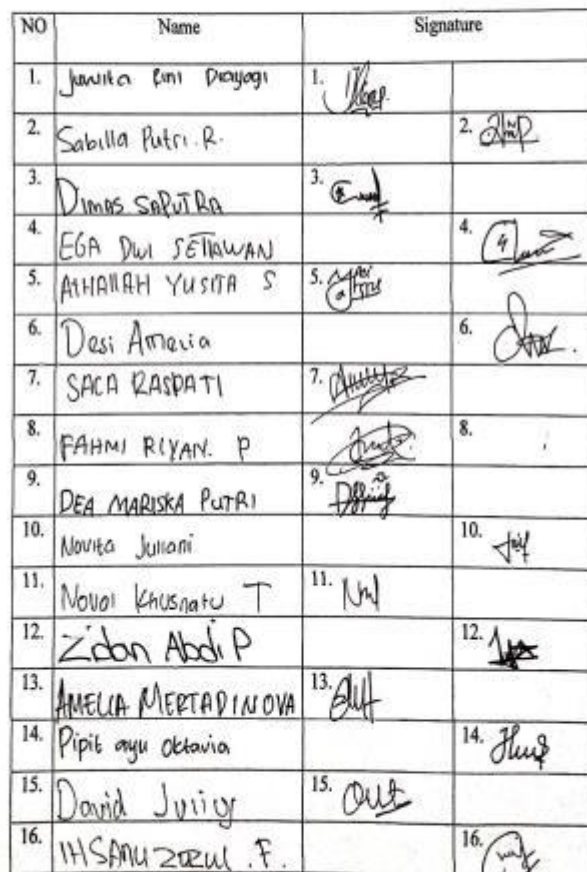 NO Name Signature
1. Juwita Rini Prayogi 1.
2. Sabilla Putri. R. 2.
3. DIMAS SAPUTRA 3.
4. EGA DWI SETIAWAN 4.
5. ATHALLAH YUSITA S 5.
6. Desi Amelia 6.
7. SACA RASPATI 7.
8. FAHMI RIYAN. P 8.
9. DEA MARISKA PUTRI 9.
10. Novita Juliani 10.
11. Noval Khusnatu T 11.
12. Zidan Abdi P 12.
13. AMELIA MERTADINOVA 13.
14. Pipit ayu oktavia 14.
15. David 15.
16. F. 16.